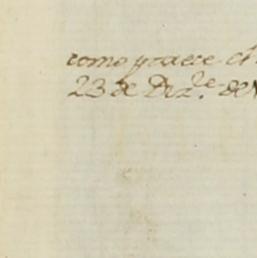 como parece el
23 de Diz.re de